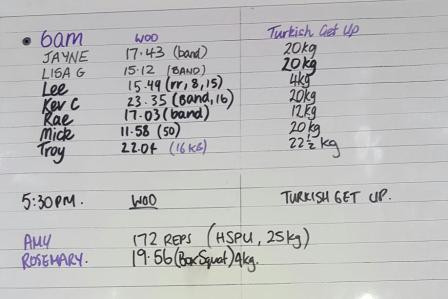 6am WOD Turkish Get Up
JAYNE 17.43 (band) 20kg
LISA G 15.12 (BAND) 20kg
Lee 15.49 (rr, 8, 15) 4kg
Kev C 23.35 (Band, 16) 20kg
Rae 17.03 (band) 12kg
Mick 11.58 (50) 20kg
Troy 22.04 (16kg) 22½ kg
5:30PM. WOD TURKISH GET UP.
AMY 172 REPS (HSPU, 25kg)
ROSEMARY. 19.56 (Box Squat) 4kg.